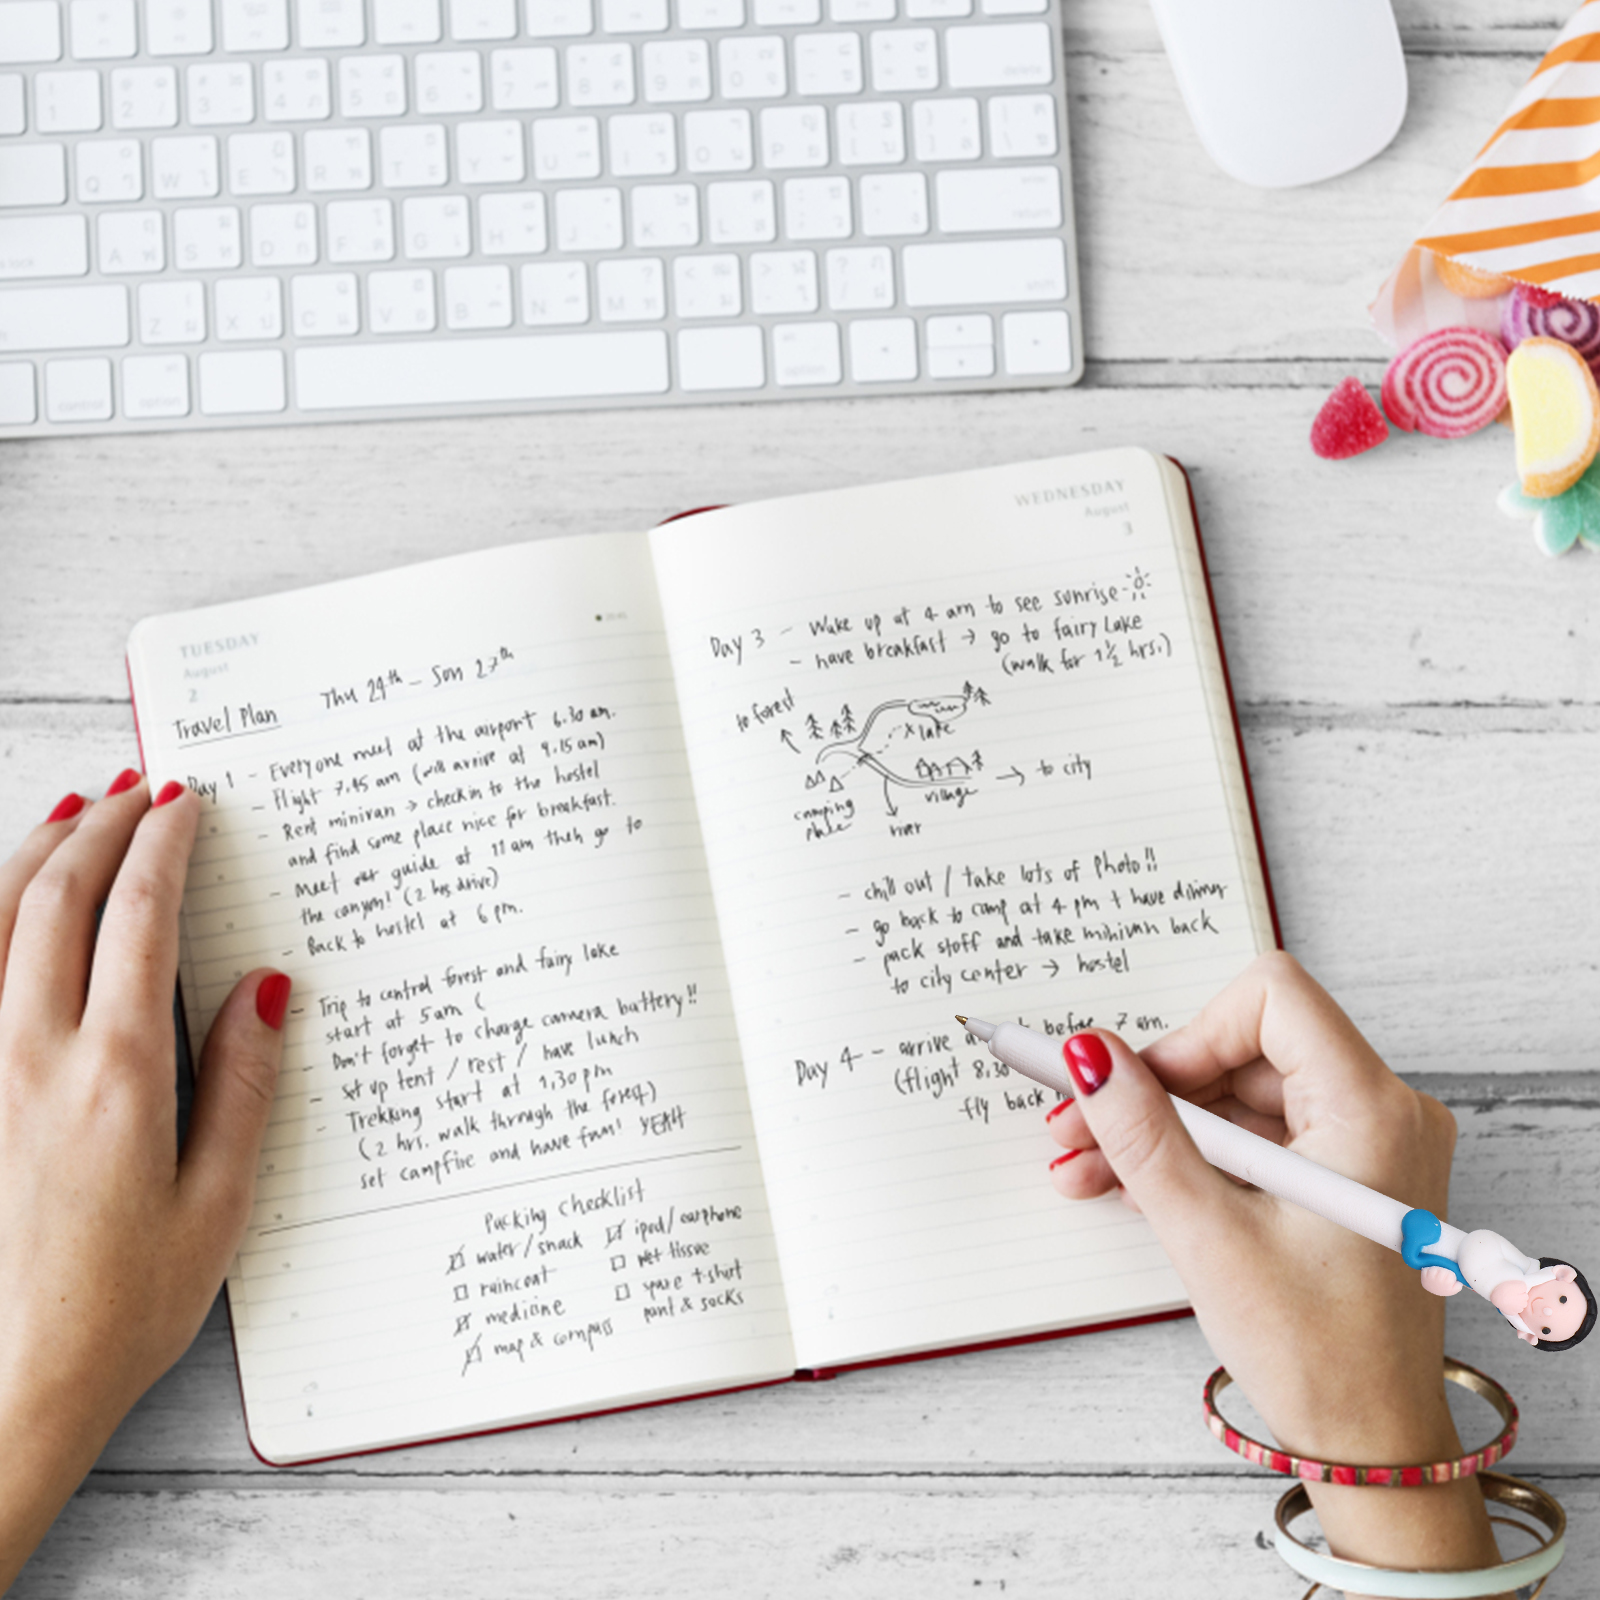 TUESDAY
August
2
Travel Plan Thu 24th – Sun 27th
Day 1 – Everyone meet at the airport 6.30 am.
– Flight 7.45 am (will arrive at 9.15 am)
– Rent minivan → check in to the hostel
and find some place nice for breakfast.
– meet our guide at 11 am then go to
the canyon! (2 hrs drive)
– Back to hostel at 6 pm.
– Trip to central forest and fairy lake
start at 5 am (
– Don't forget to charge camera battery!!
– set up tent / rest / have lunch
– Trekking start at 1.30 pm
(2 hrs. walk through the forest)
set campfire and have fun! YEAH
Packing Checklist
water / snack
raincoat
medicine
map & compass
ipod / earphone
wet tissue
spare t-shirt
pant & socks
WEDNESDAY
August
3
Day 3 – Wake up at 4 am to see sunrise
– have breakfast → go to fairy Lake
(walk for 1 1/2 hrs.)
to forest
x lake
→ to city
camping
place
village
river
– chill out / take lots of photo!!
– go back to camp at 4 pm + have dinner
– pack stuff and take minivan back
to city center → hostel
Day 4 – arrive before 7 am.
(flight 8.30
fly back
1
2
3
4
5
6
7
8
9
0
delete
Q
W
E
R
T
Y
U
I
O
P
A
S
D
F
G
H
J
K
L
return
Z
X
C
V
B
N
M
shift
control
option
option